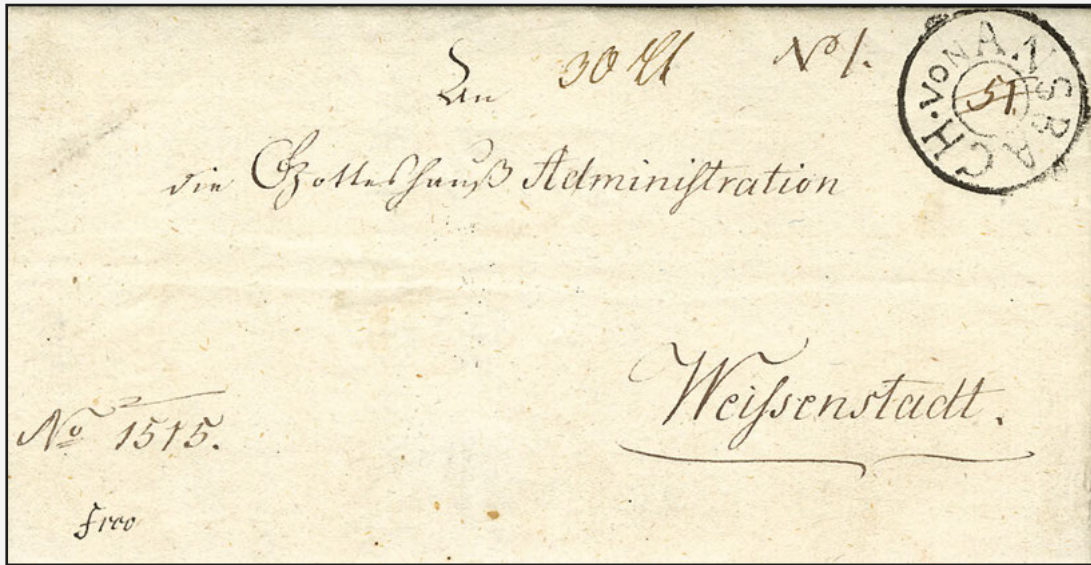 An
No 1.
CH. VON ANSBA
51.
die Gotteshauß Administration
Weissenstadt.
No 1515.
frco